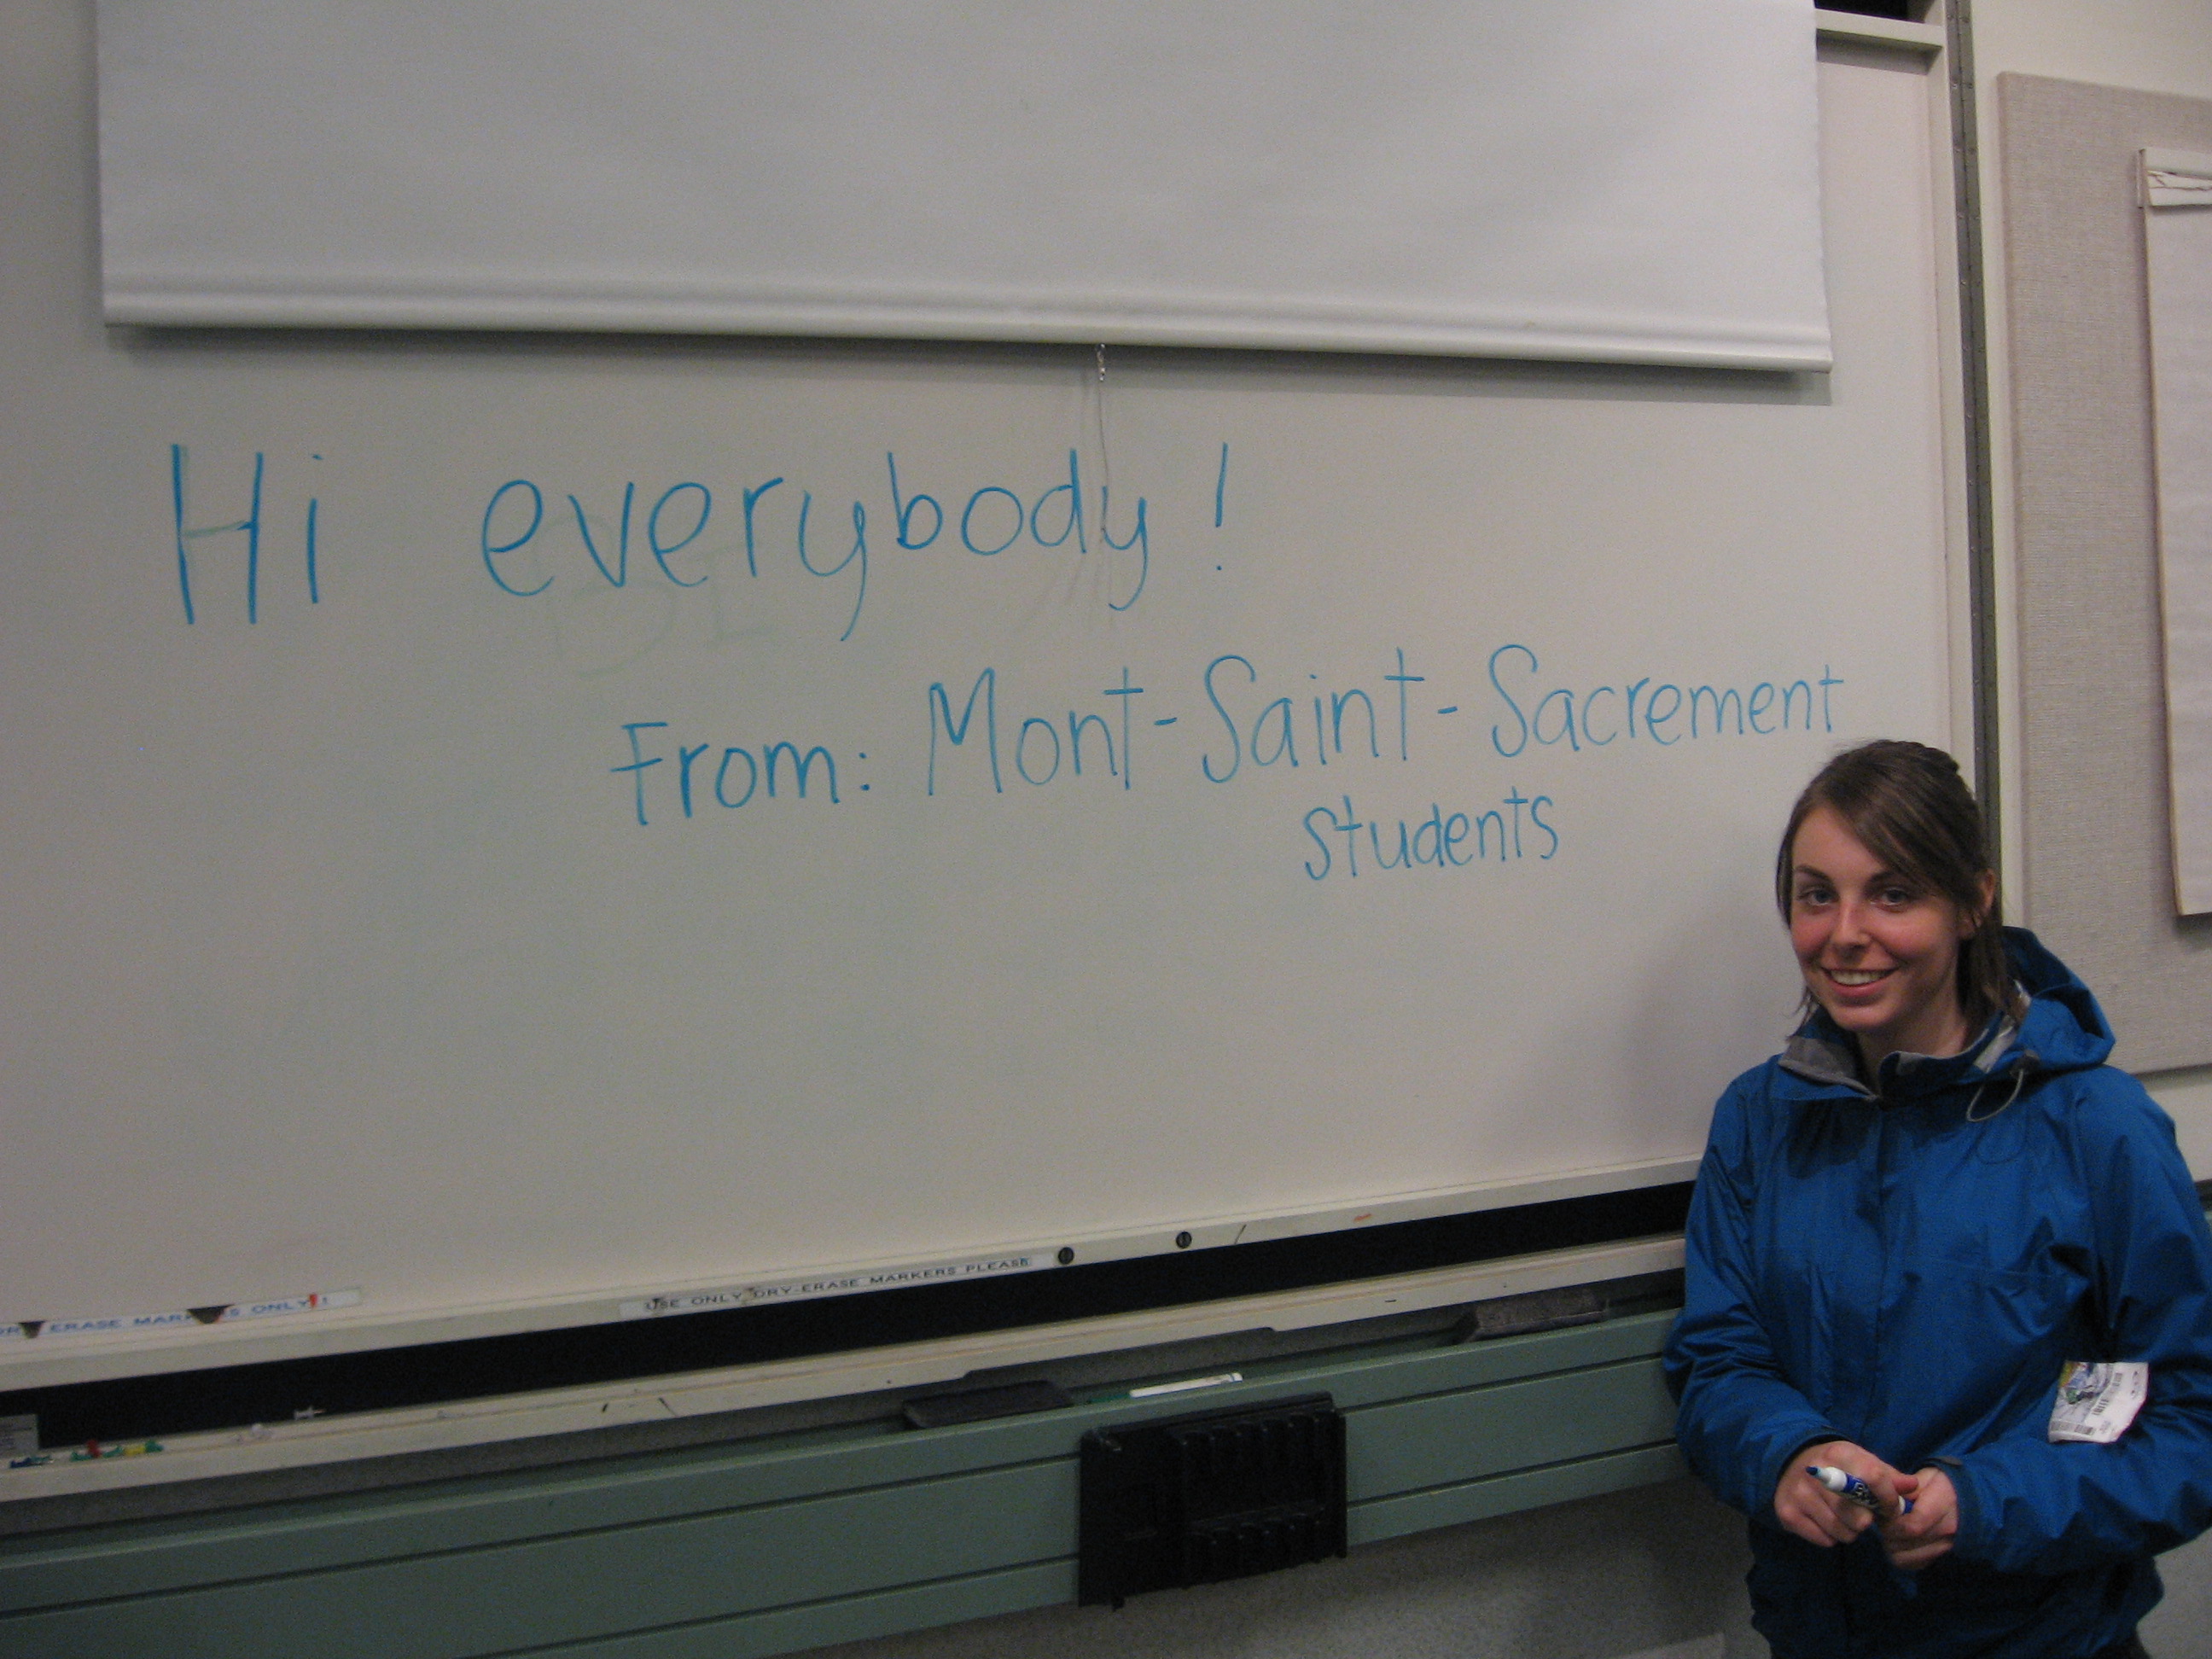 Hi everybody!
From: Mont-Saint-Sacrement
students
USE ONLY DRY-ERASE MARKERS PLEASE
ERASE ONLY!